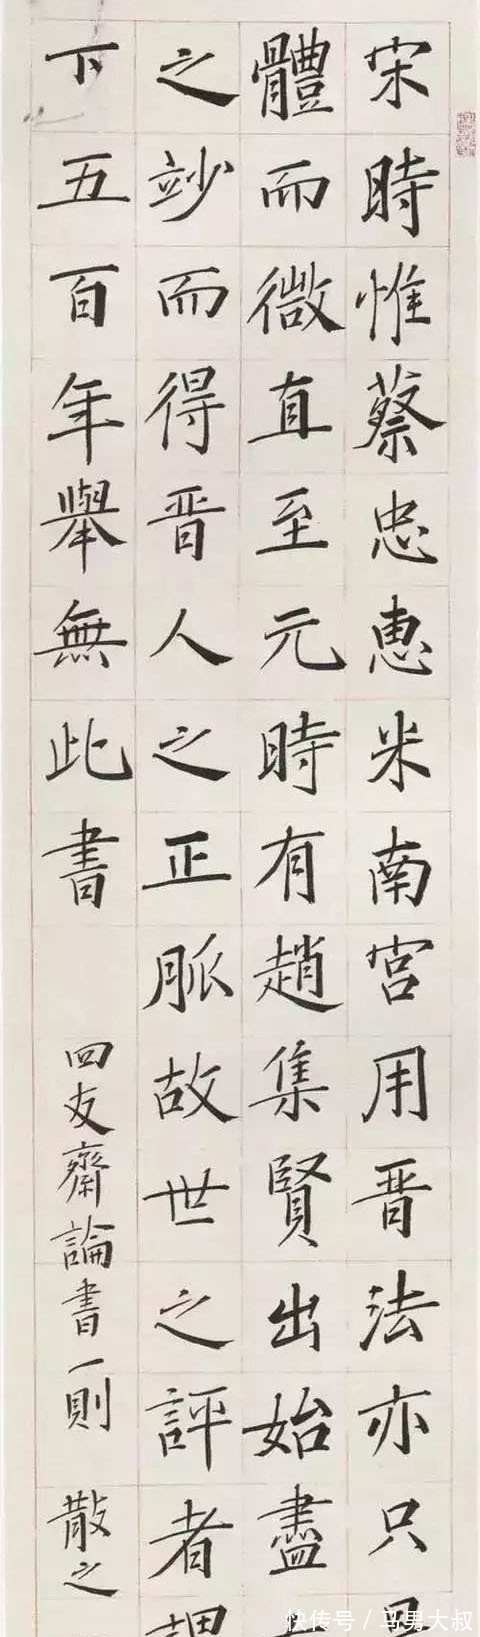 宋時惟蔡忠惠米南宮用晋法亦只
體而微直至元時有趙集賢出始盡
之竗而得晋人之正脈故世之評者
下五百年舉無此書
四友齋論書一則 散之
快传号 / 马男大叔